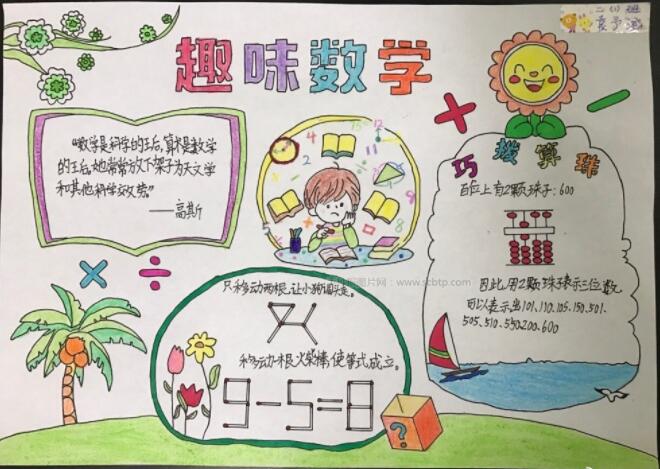 二(1)班
趣味数学
"数学是科学的王后,算术是数学
的王后。她常常放下架子为天文学
和其他科学效劳。"
——高斯
巧拨算珠
百位上有2颗珠子:600
因此用2颗珠子表示三位数
可以表示出101.110.105.150.501.
505.510.550.200.600
只移动两根,让小狗回头走。
移动一根火柴棒,使等式成立。
9-5=8
?
www.scbtp.com